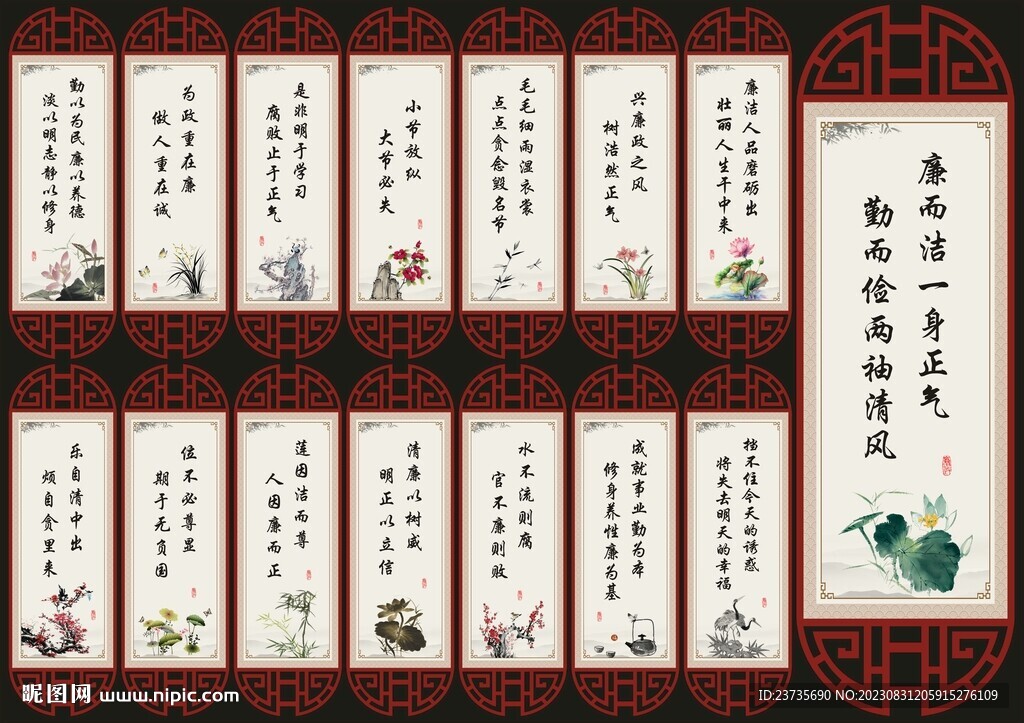 勤以为民廉以养德
淡以明志静以修身
为政重在廉
做人重在诚
是非明于学习
腐败止于正气
小节放纵
大节必失
毛毛细雨湿衣裳
点点贪念毁名节
兴廉政之风
树浩然正气
廉洁人品磨砺出
壮丽人生干中来
廉而洁一身正气
勤而俭两袖清风
乐自清中出
烦自贪里来
位不必尊显
期于无负国
莲因洁而尊
人因廉而正
清廉以树威
明正以立信
水不流则腐
官不廉则败
成就事业勤为本
修身养性廉为基
挡不住今天的诱惑
将失去明天的幸福
昵图网 www.nipic.com
ID:23735690 NO:20230831205915276109